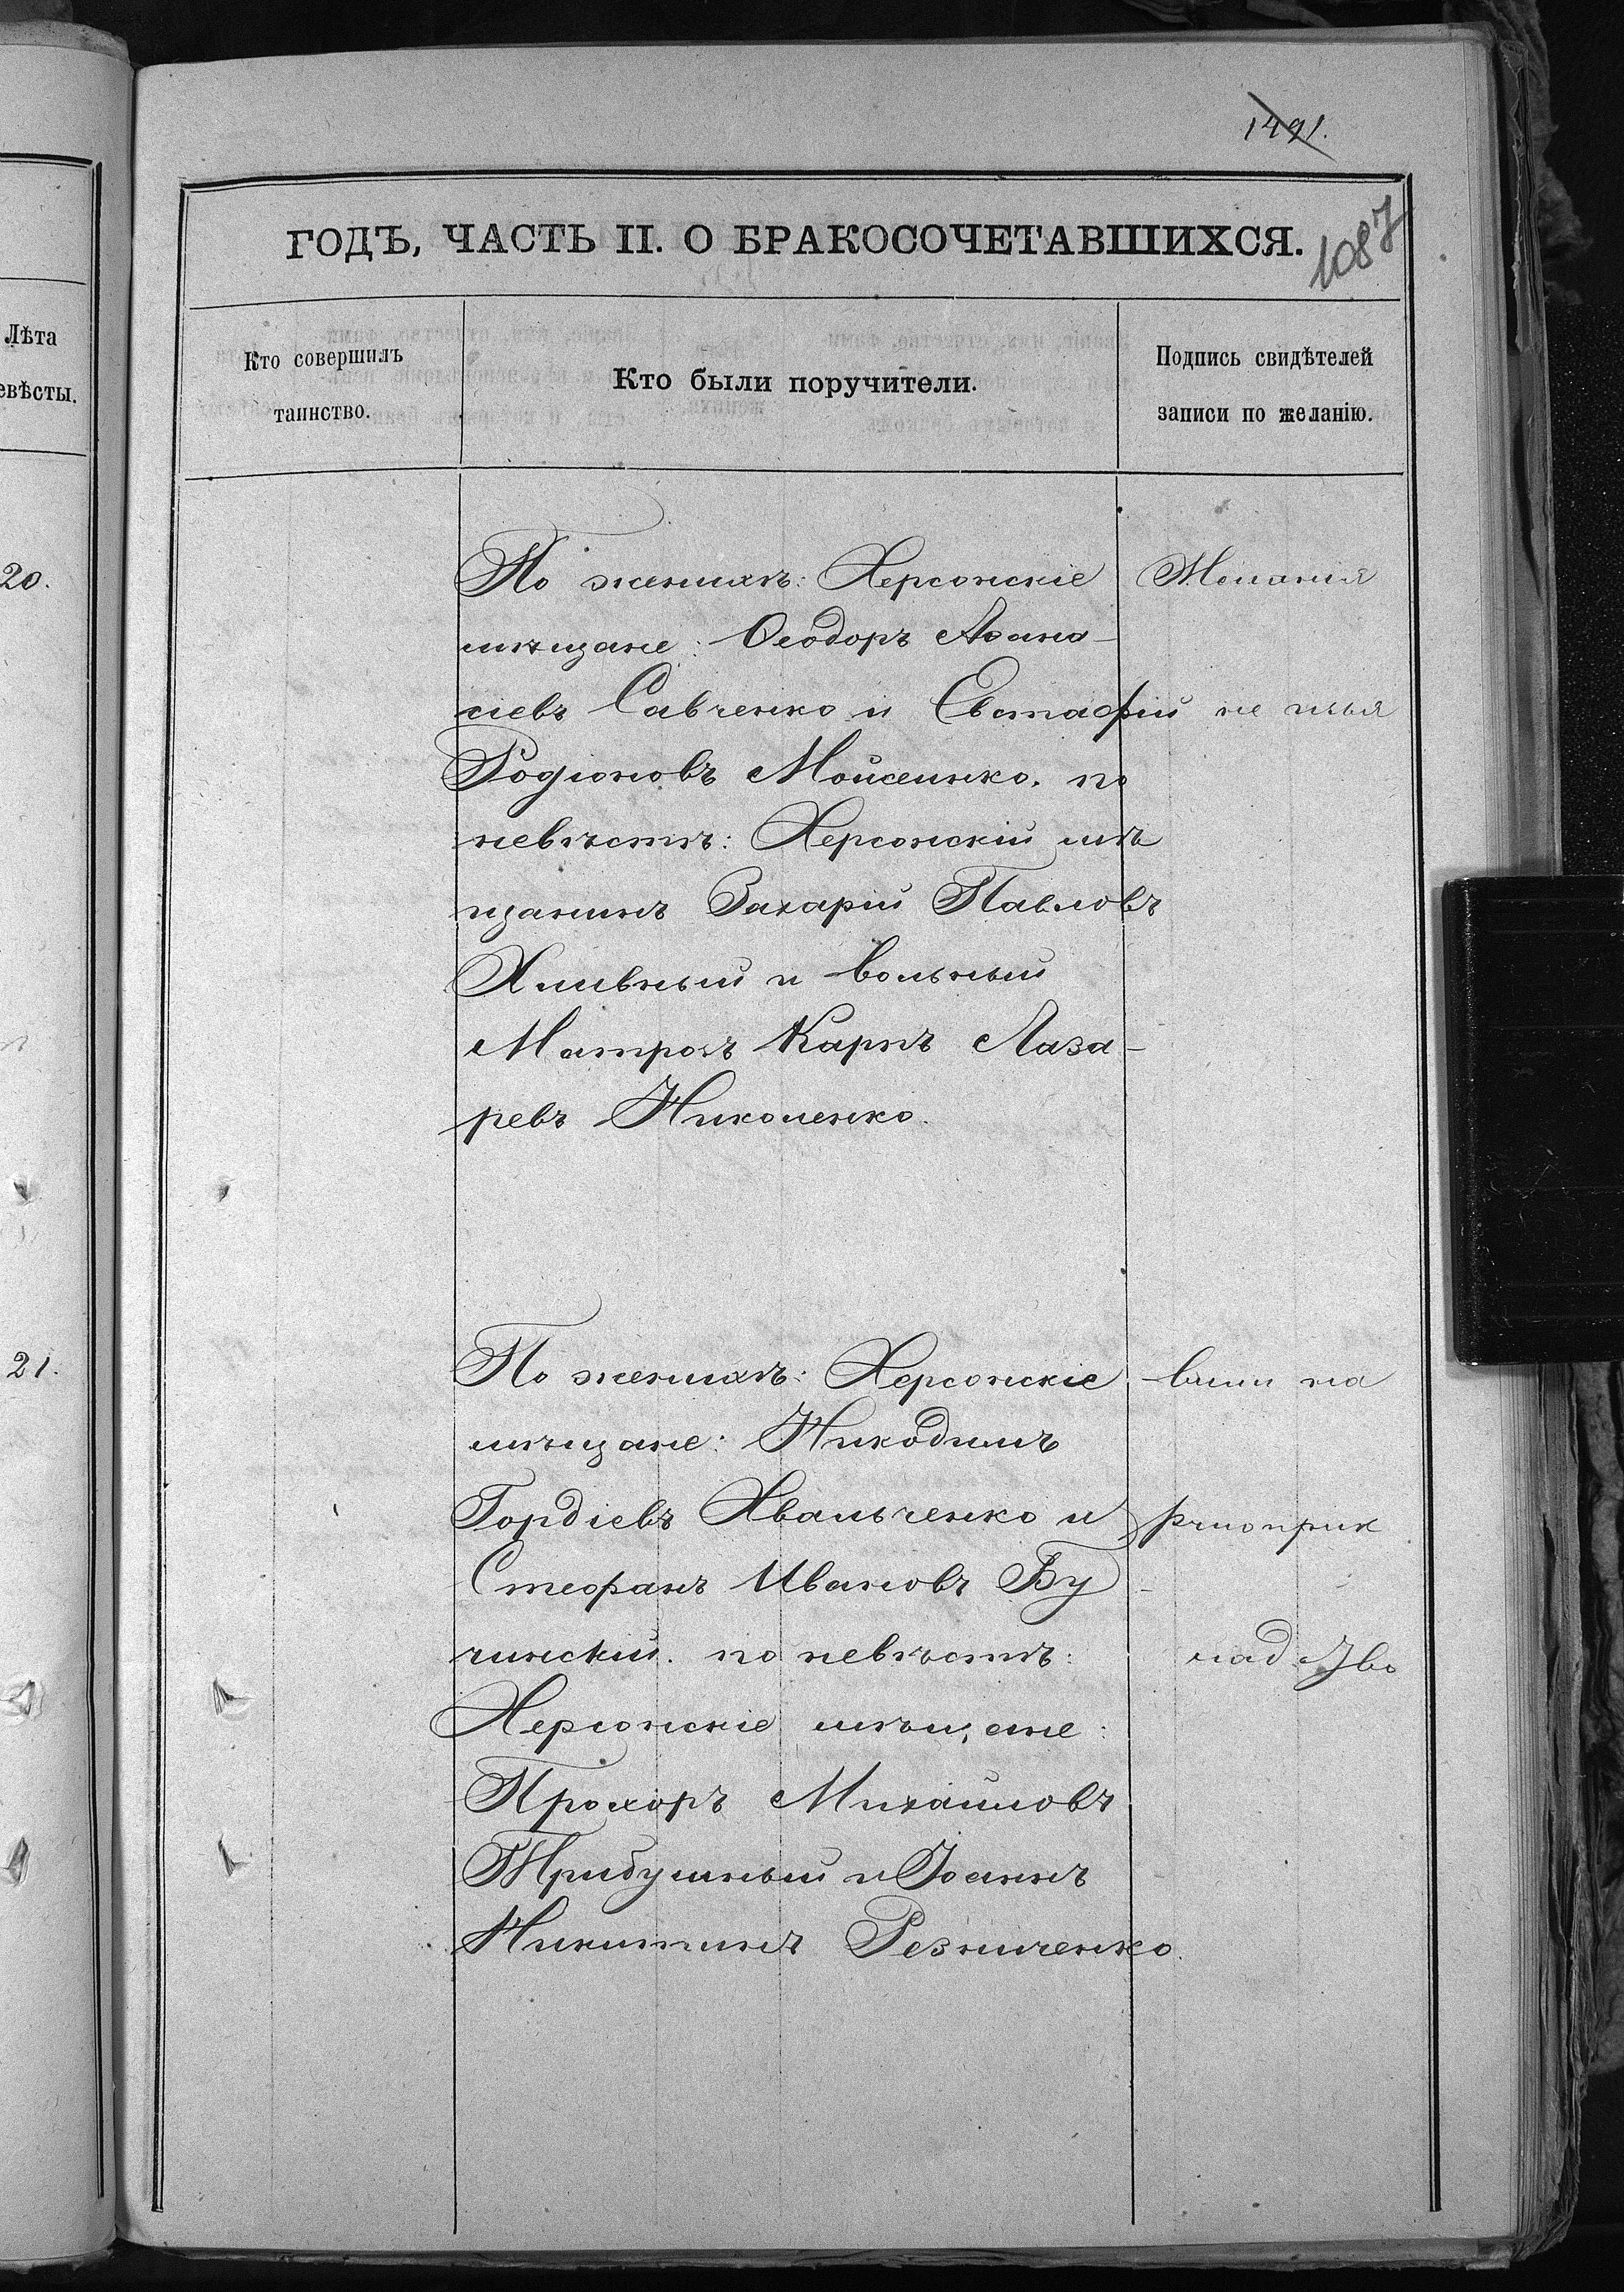 1491.
ГОДЪ, ЧАСТЬ II. О БРАКОСОЧЕТАВШИХСЯ.
1087
Лѣта
евѣсты.
Кто совершилъ
таинство.
Кто были поручители.
Подпись свидѣтелей
записи по желанію.
20.
По женихѣ: Херсонскіе
мѣщане: Ѳеодоръ Аѳана-
сіевъ Савченко и Евстафій
Родіоновъ Мойсеенко. по
невѣстѣ: Херсонскій мѣ
щанинъ Захарій Павловъ
Хливный и вольный
Матросъ Карпъ Лаза-
ревъ Николенко.
не
21.
По женихѣ: Херсонскіе
мѣщане: Никодимъ
Гордіевъ Хвальченко и
Стефанъ Ивановъ Бу-
чинскій. по невѣстѣ:
Херсонскіе мѣщане:
Прохоръ Михайловъ
Трибушный и Іоаннъ
Никитинъ Резниченко.
на